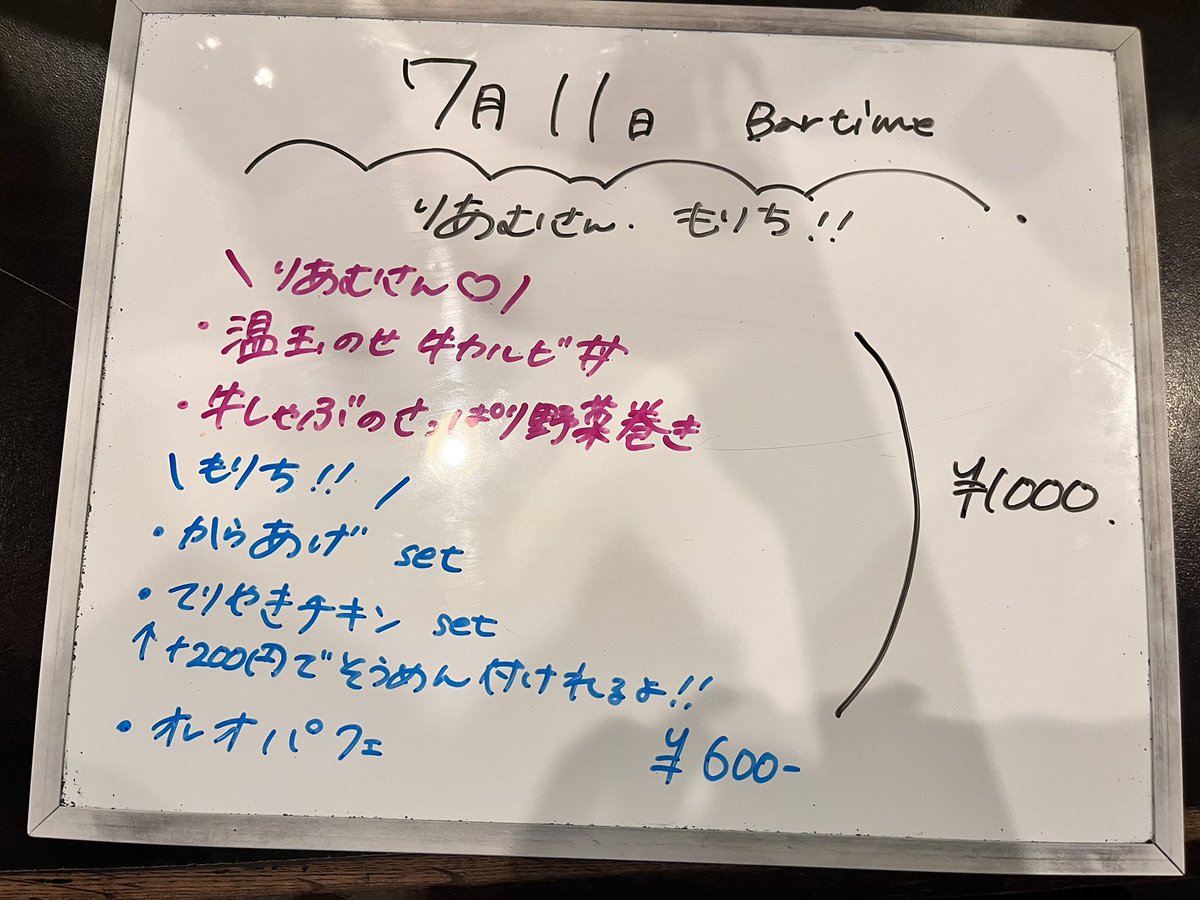 7月11日 Bartime
りあむさん. もりち!!
\りあむさん♡/
・温玉のせ牛カルビ丼
・牛しゃぶのさっぱり野菜巻き
\もりち!!/
・からあげ set
・てりやきチキン set
¥1000.
↑+200円でそうめん付けれるよ!!
・オレオパフェ ¥600-